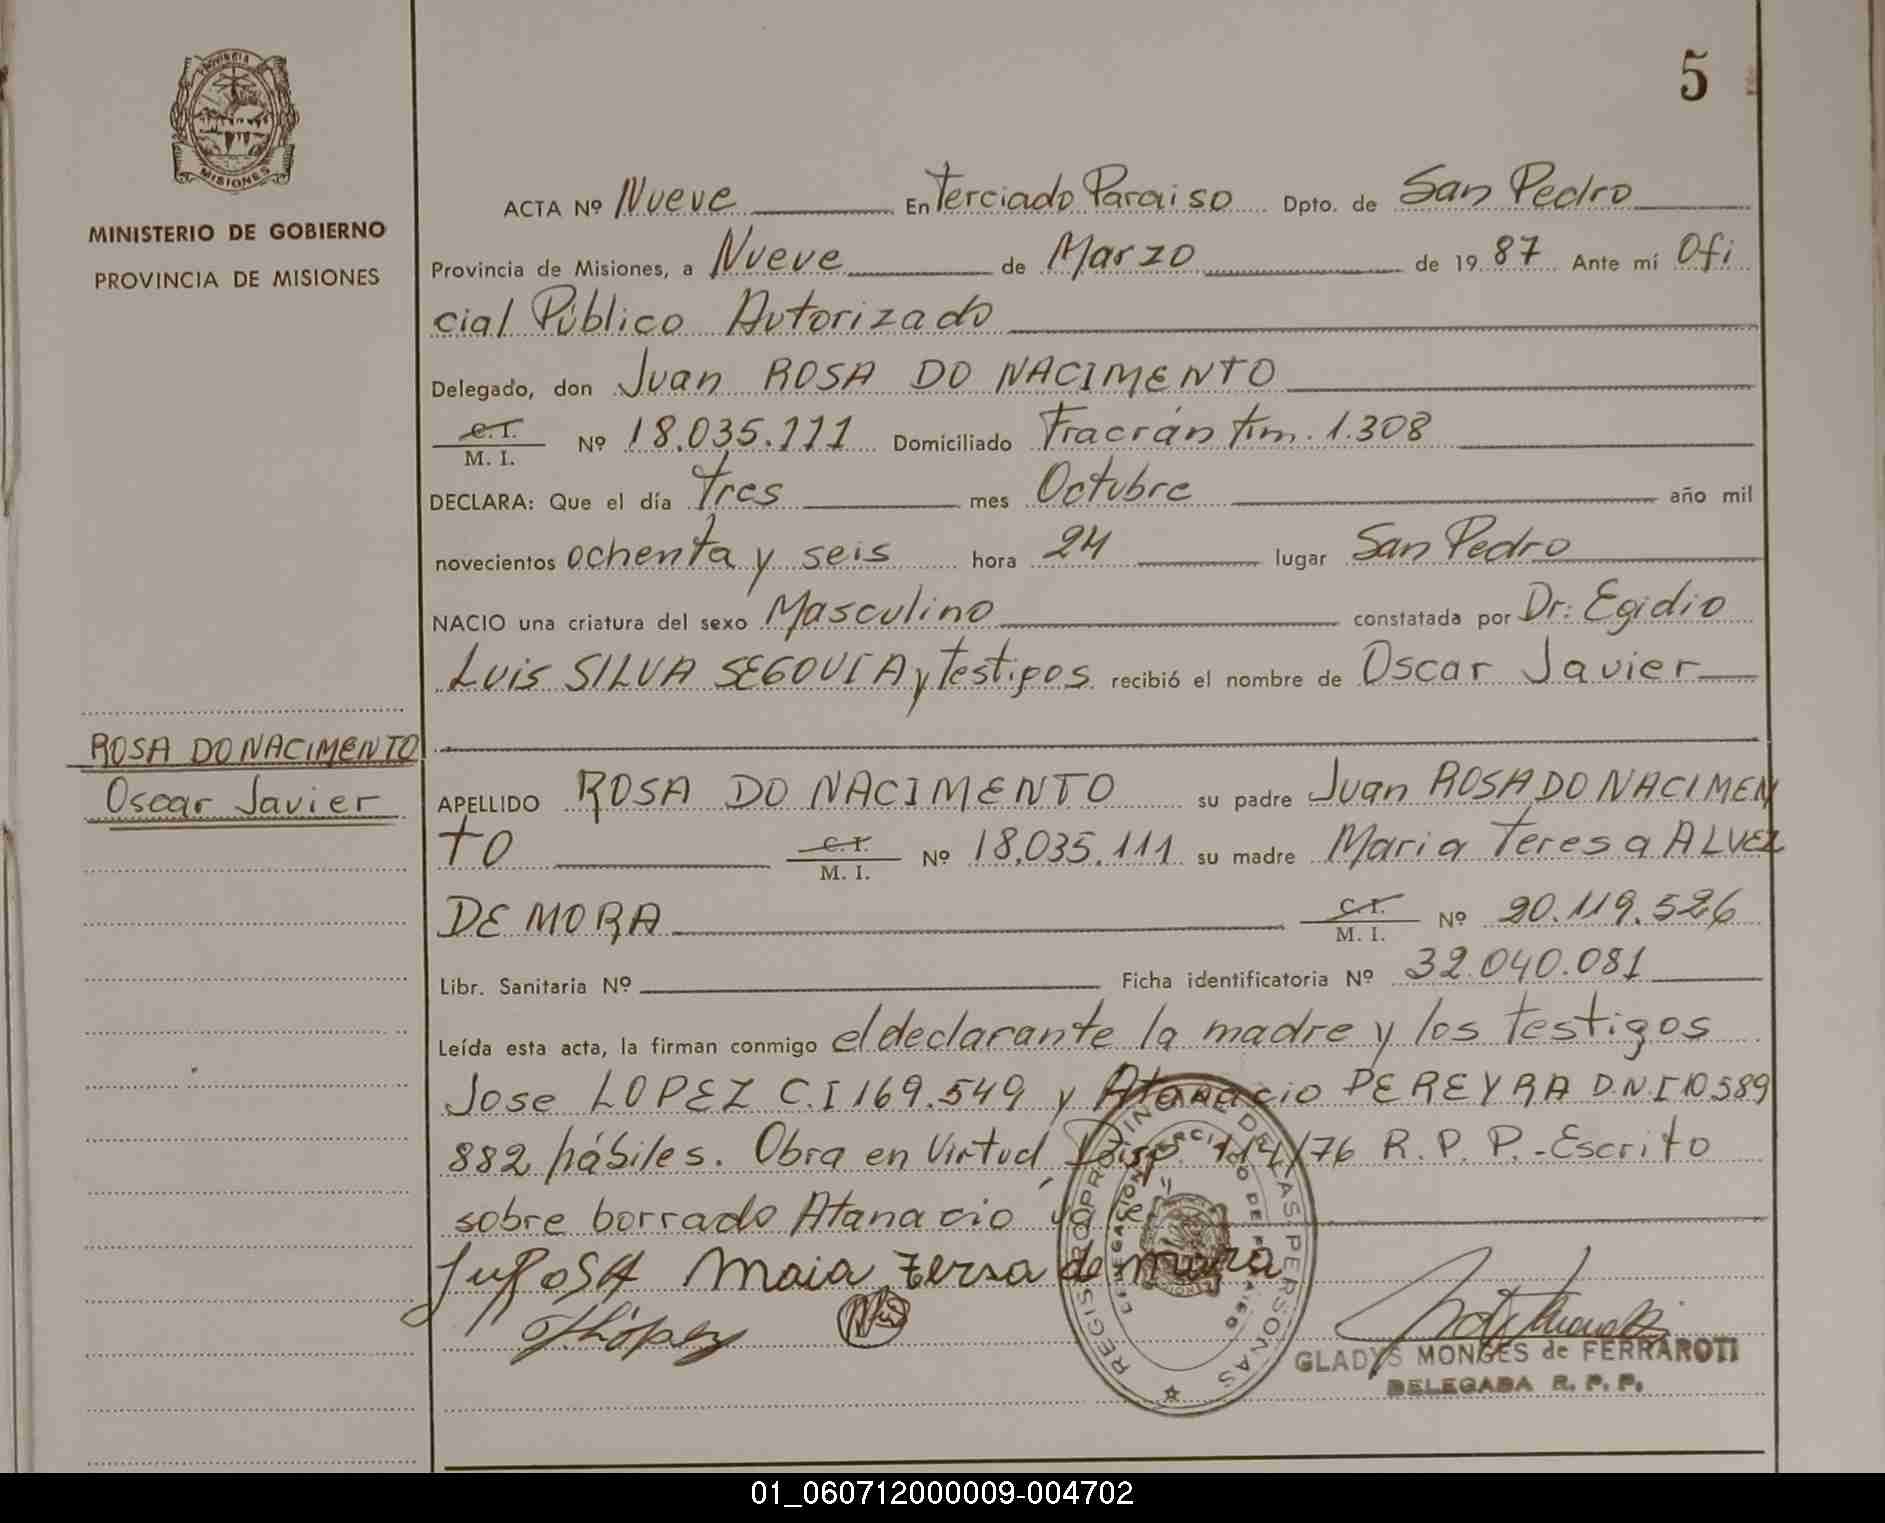 PROVINCIA
MISIONES
MINISTERIO DE GOBIERNO
PROVINCIA DE MISIONES
5
ACTA Nº Nueve En Terciado Paraiso Dpto. de San Pedro
Provincia de Misiones, a Nueve de Marzo de 19 87 Ante mí Ofi
cial Público Autorizado
Delegado, don Juan ROSA DO NACIMENTO
C. I.
M. I. Nº 18.035.111 Domiciliado Fracrán Km. 1.308
DECLARA: Que el día tres mes Octubre año mil
novecientos ochenta y seis hora 24 lugar San Pedro
NACIO una criatura del sexo Masculino constatada por Dr: Egidio
Luis SILVA SEGOVIA y testigos recibió el nombre de Oscar Javier
ROSA DO NACIMENTO
Oscar Javier
APELLIDO ROSA DO NACIMENTO su padre Juan ROSA DO NACIMEN
TO C. I.
M. I. Nº 18.035.111 su madre Maria Teresa ALVEZ
DE MORA C. I.
M. I. Nº 20.119.526
Libr. Sanitaria Nº Ficha identificatoria Nº 32.040.081
Leída esta acta, la firman conmigo el declarante la madre y los testigos
Jose LOPEZ C.I 169.549 y Atanacio PEREYRA D.N.I 10.589
882 hábiles. Obra en Virtud Disp. 114/76 R. P. P.-Escrito
sobre borrado Atanacio vale
JuROSA Maia terza de mora
JLópez
REGISTRO PROVINCIAL DE LAS PERSONAS
GLADYS MONGES de FERRAROTI
DELEGADA R. P. P.
01_060712000009-004702